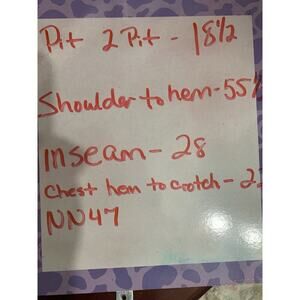 Pit 2 Pit - 18½
Shoulder to hem - 55
inseam - 28
Chest hem to crotch -
NN47